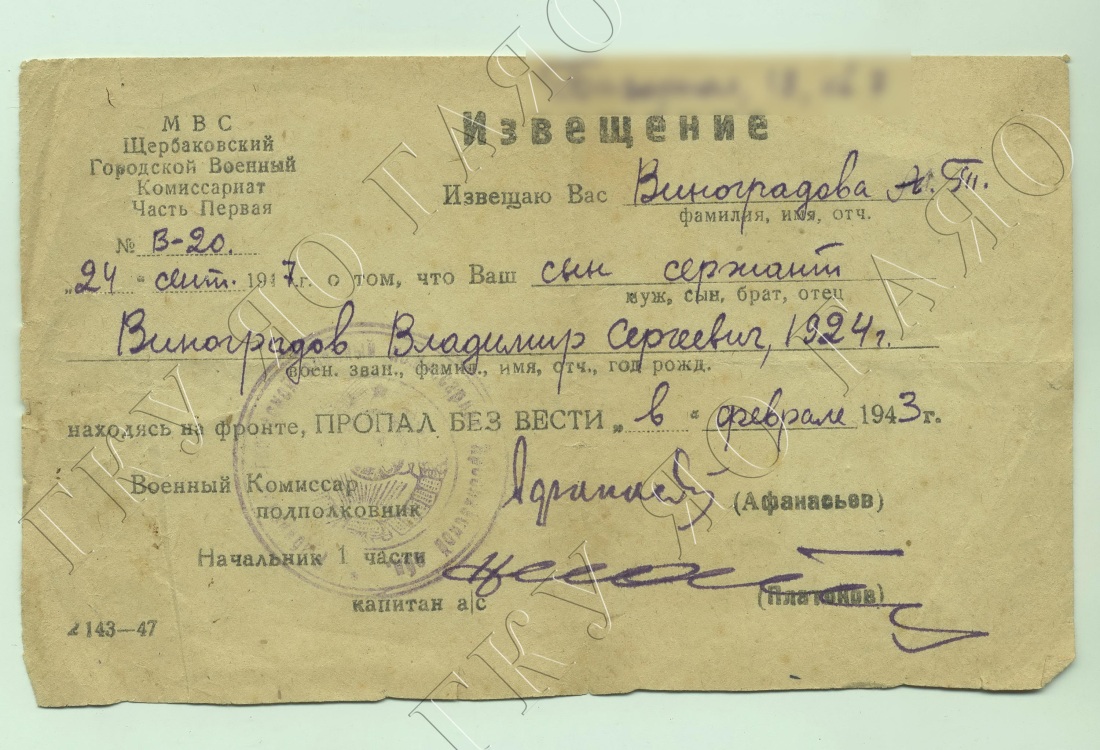 МВС
Щербаковский
Городской Военный
Комиссариат
Часть Первая
№ В-20.
„24“ сент. 1947г.
Извещение
Извещаю Вас Виноградова
фамилия, имя, отч.
о том, что Ваш сын сержант
муж, сын, брат, отец
Виноградов Владимир Сергеевич, 1924г.
воен. зван., фамил., имя, отч., год рожд.
находясь на фронте, ПРОПАЛ БЕЗ ВЕСТИ „в“ феврале 1943г.
Военный Комиссар
подполковник
(Афанасьев)
Начальник 1 части
капитан а/с
(Платонов)
143—47
ГКУ ЯО ГАЯО
ГКУ ЯО ГАЯО